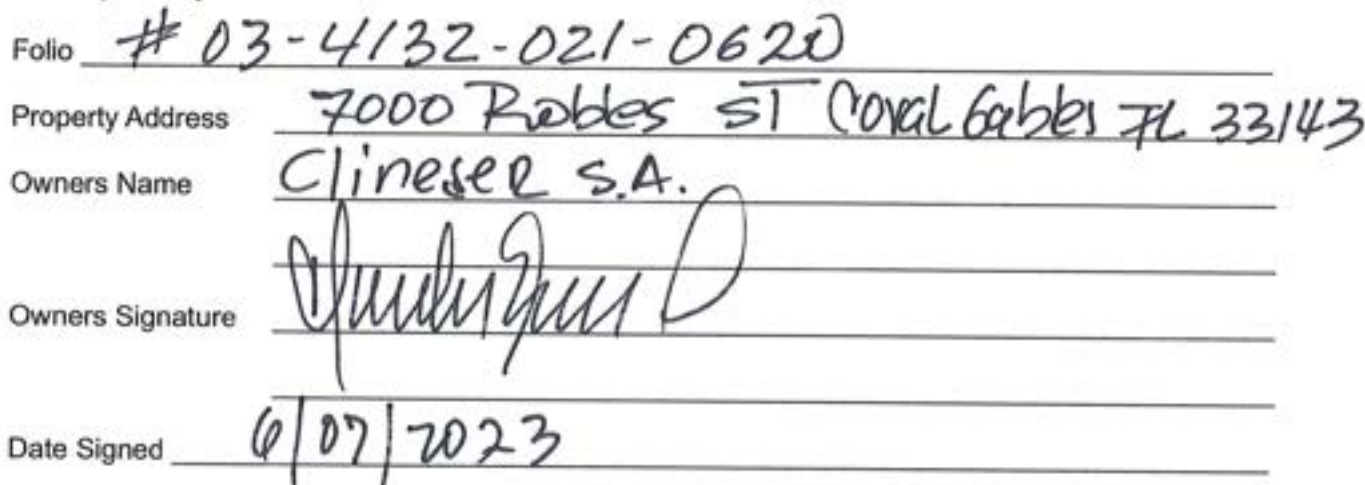 Folio # 03-4132-021-0620
Property Address 7000 Robles ST Coral Gables FL 33143
Owners Name Clineser S.A.
Owners Signature
Date Signed 6/07/2023